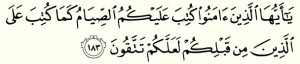 يَـٰٓأَيُّهَا ٱلَّذِينَ ءَامَنُوا۟ كُتِبَ عَلَيْكُمُ ٱلصِّيَامُ كَمَا كُتِبَ عَلَى
ٱلَّذِينَ مِن قَبْلِكُمْ لَعَلَّكُمْ تَتَّقُونَ ١٨٣